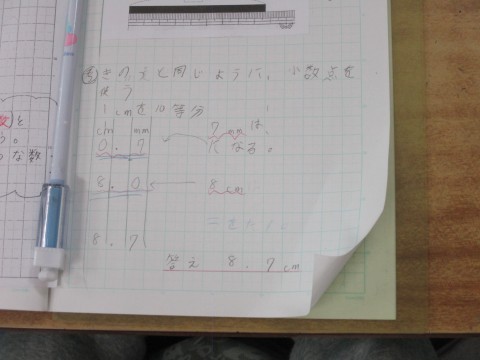 きのえと同じように、小数点を
使う
1cmを10等分
cm mm 7mmは、
0.7 になる。
8.0 8cm
8.7
答え 8.7cm
と
う。
な数